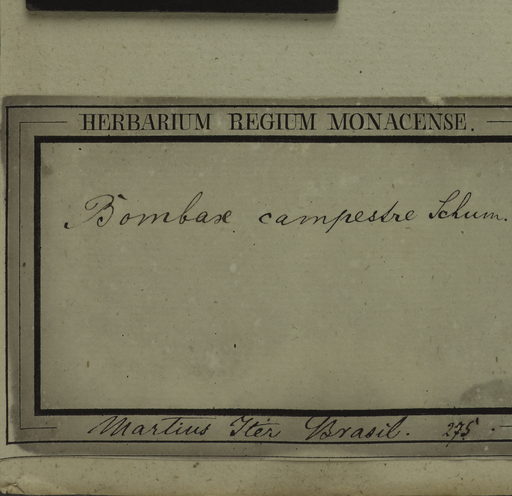 HERBARIUM REGIUM MONACENSE.
Bombax campestre Schum.
Martius Iter Brasil. 275.